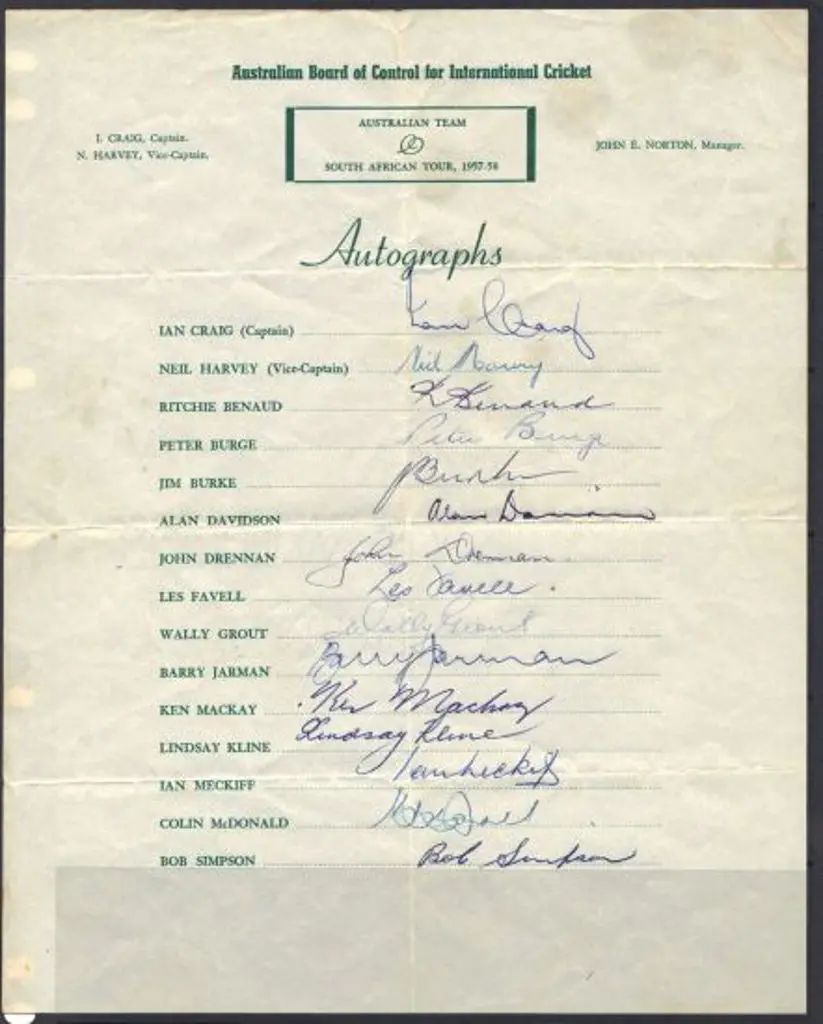 Australian Board of Control for International Cricket
I. CRAIG, Captain.
N. HARVEY, Vice-Captain.
AUSTRALIAN TEAM
SOUTH AFRICAN TOUR, 1957-58
JOHN E. NORTON, Manager.
Autographs
IAN CRAIG (Captain) Ian Craig
NEIL HARVEY (Vice-Captain) Neil Harvey
RITCHIE BENAUD R Benaud
PETER BURGE Peter Burge
JIM BURKE J Burke
ALAN DAVIDSON Alan Davidson
JOHN DRENNAN John Drennan
LES FAVELL Les Favell
WALLY GROUT Wally Grout
BARRY JARMAN Barry Jarman
KEN MACKAY Ken Mackay
LINDSAY KLINE Lindsay Kline
IAN MECKIFF Ian Meckiff
COLIN McDONALD
BOB SIMPSON Bob Simpson